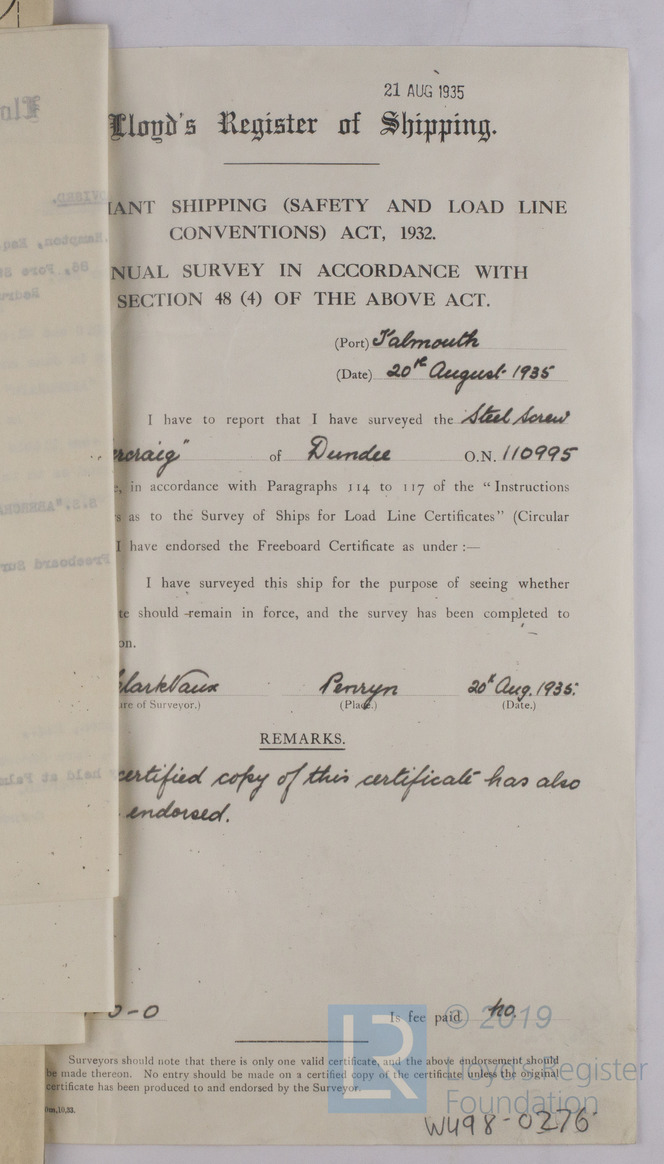 21 AUG 1935
Lloyd's Register of Shipping.
ANT SHIPPING (SAFETY AND LOAD LINE
CONVENTIONS) ACT, 1932.
NUAL SURVEY IN ACCORDANCE WITH
SECTION 48 (4) OF THE ABOVE ACT.
(Port) Falmouth
(Date) 20th August 1935
I have to report that I have surveyed the Steel Screw
ercraig" of Dundee O.N. 110995
e, in accordance with Paragraphs 114 to 117 of the "Instructions
s as to the Survey of Ships for Load Line Certificates" (Circular
I have endorsed the Freeboard Certificate as under :—
I have surveyed this ship for the purpose of seeing whether
te should remain in force, and the survey has been completed to
on.
Clark Vaux Penryn 20th Aug. 1935.
re of Surveyor.) (Place.) (Date.)
REMARKS.
certified copy of this certificate has also
endorsed.
0-0 Is fee paid no.
Surveyors should note that there is only one valid certificate, and the above endorsement should
be made thereon. No entry should be made on a certified copy of the certificate unless the original
certificate has been produced to and endorsed by the Surveyor.
0m,10,33.
© 2019
LR Lloyd's Register
Foundation
W498-0276